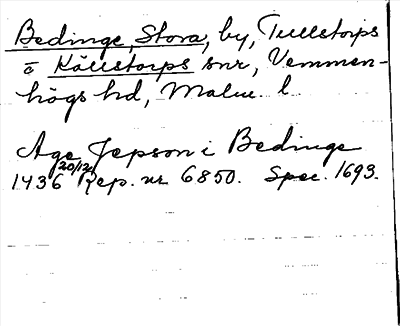 Bedinge, Stora, by, Tullstorps
o Källstorps snr, Vemmen-
högs hd, Malm. l.
Åge Jepson i Bedinge
1436 20/12 Rep. nr 6850. Spec. 1693.